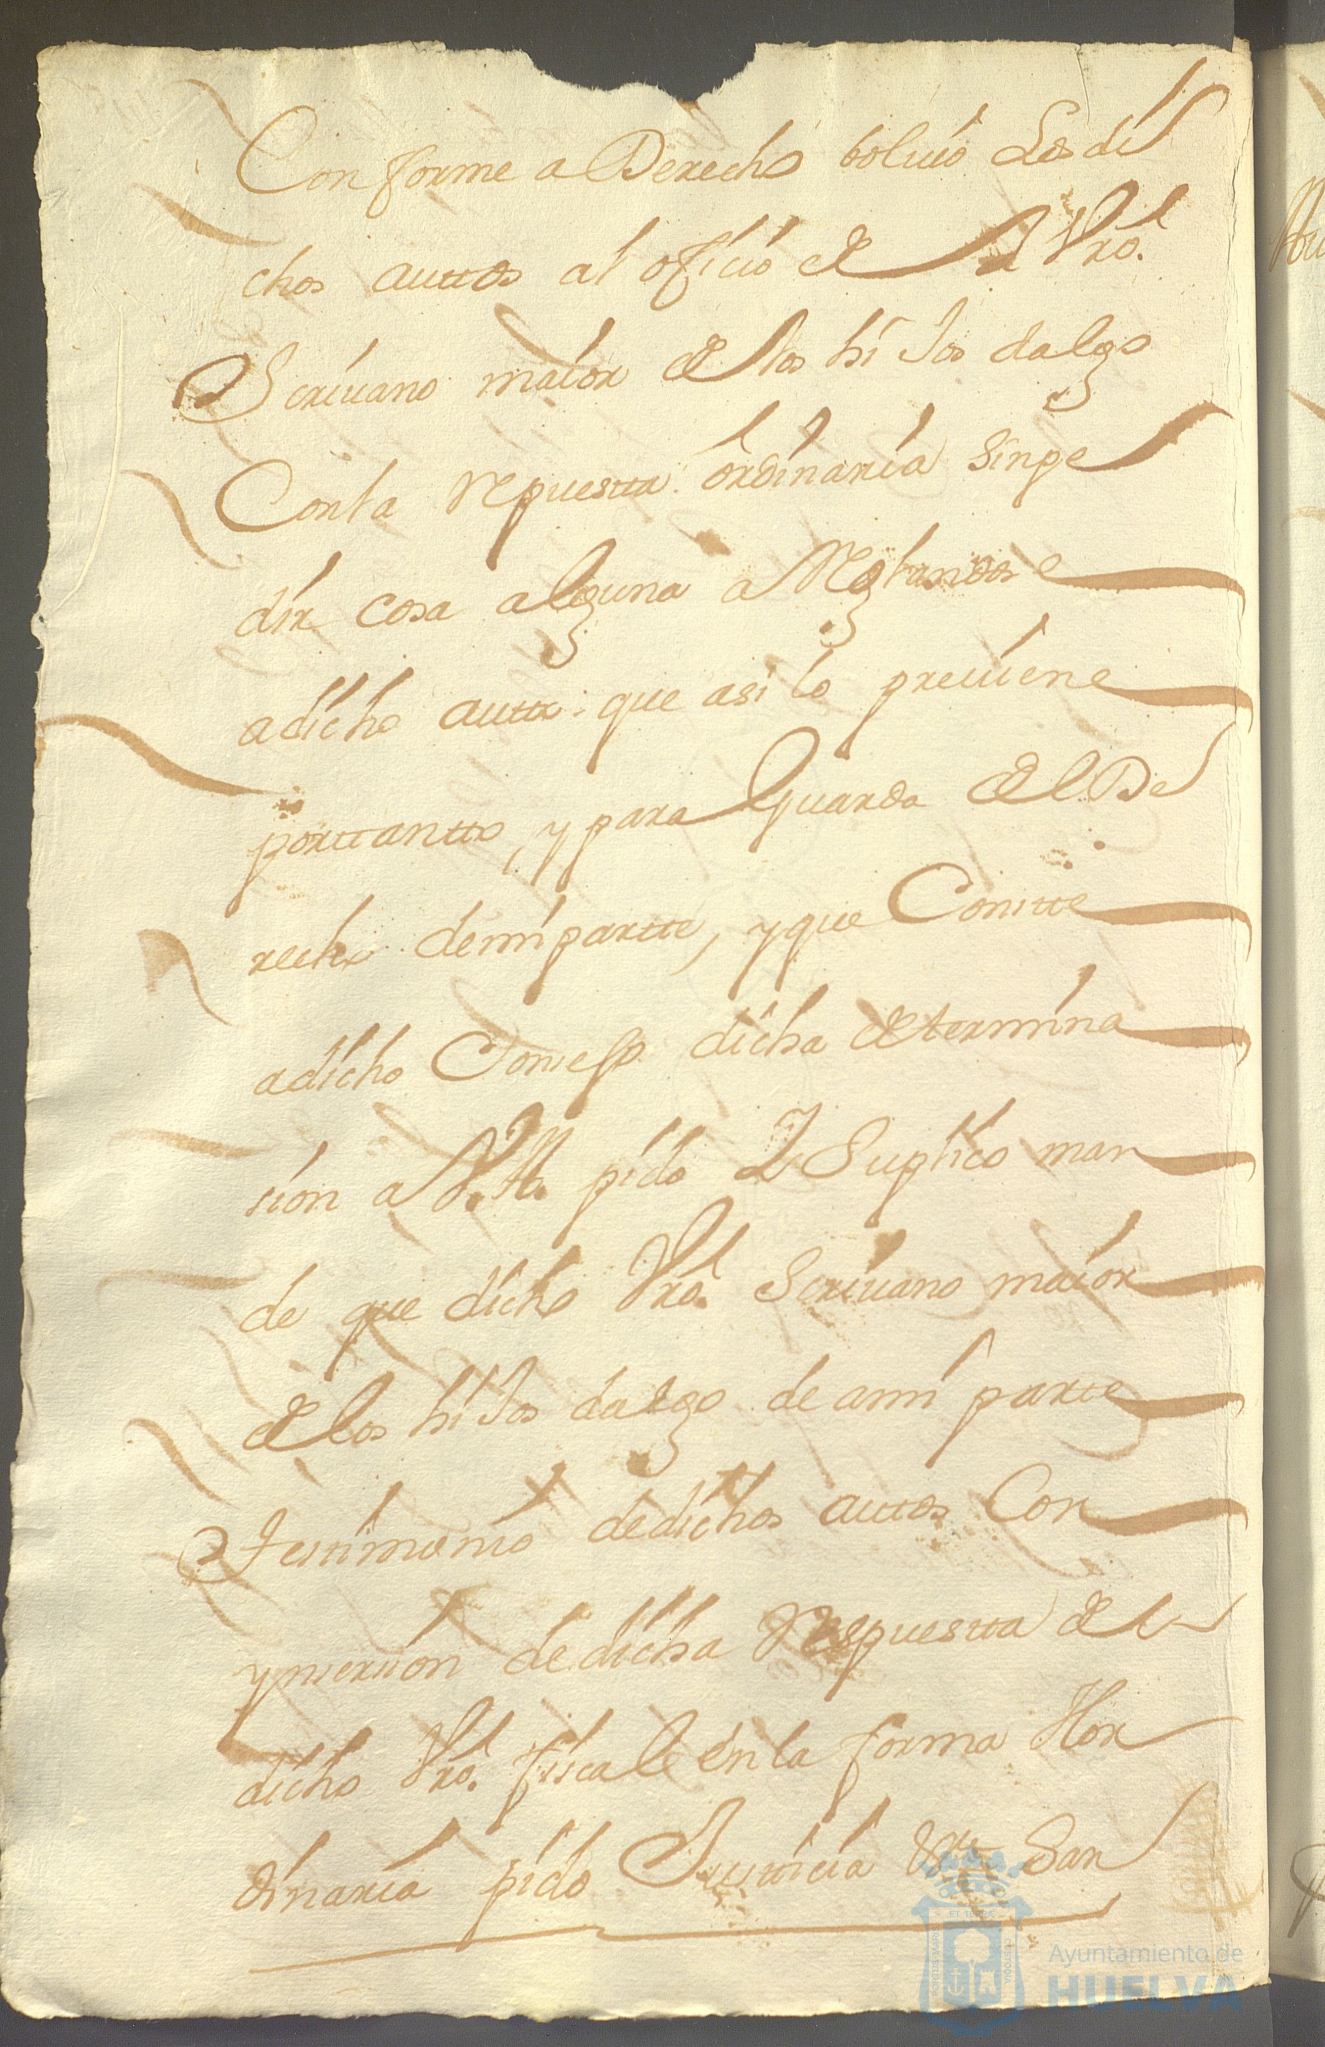 Conforme a Derecho boluió Los di
chos auttos al oficio de el Vro.
Scriuano maior de los hi Jos dalgo
Con la repuestta ordinaria sin pe
dir cosa alguna arreglandose
a dicho autto que asi lo preuiene
por ttantto, y para Guarda del De
recho de mi partte, y que Constte
a dicho Consejo dicha determina
sion a V. A. pido Y Suplico man
de que dicho Vro. Scriuano maior
de los hi Jos dalgo de a mi partte
testimonio de dichos auttos Con
ynsersion de dicha respuestta del
dicho Vro. fiscal en la forma Hor
dinaria pido Justticia San
Ayuntamiento de
HUELVA